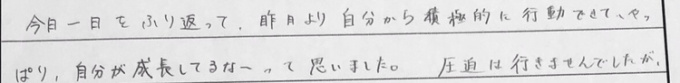 今日一日をふり返って、昨月より自分から積極的に行動できて、やっ
ぱり、自分が成長してるなーって思いました。圧迫は行きませんでしたが、